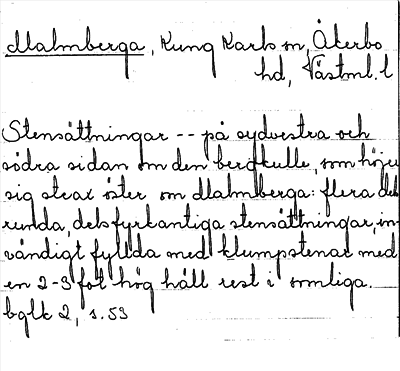 Malmberga, Kung Karls sn, Åkerbo
hd, Västml. l
Stensättningar -- på sydvestra och
södra sidan om den bergkulle, som höjer
sig strax öster om Malmberga: flera dels
runda, dels fyrkantiga stensättningar, in-
vändigt fyllda med klumpstenar med
en 2-3 fot hög häll rest i somliga.
bglk 2, s. 53